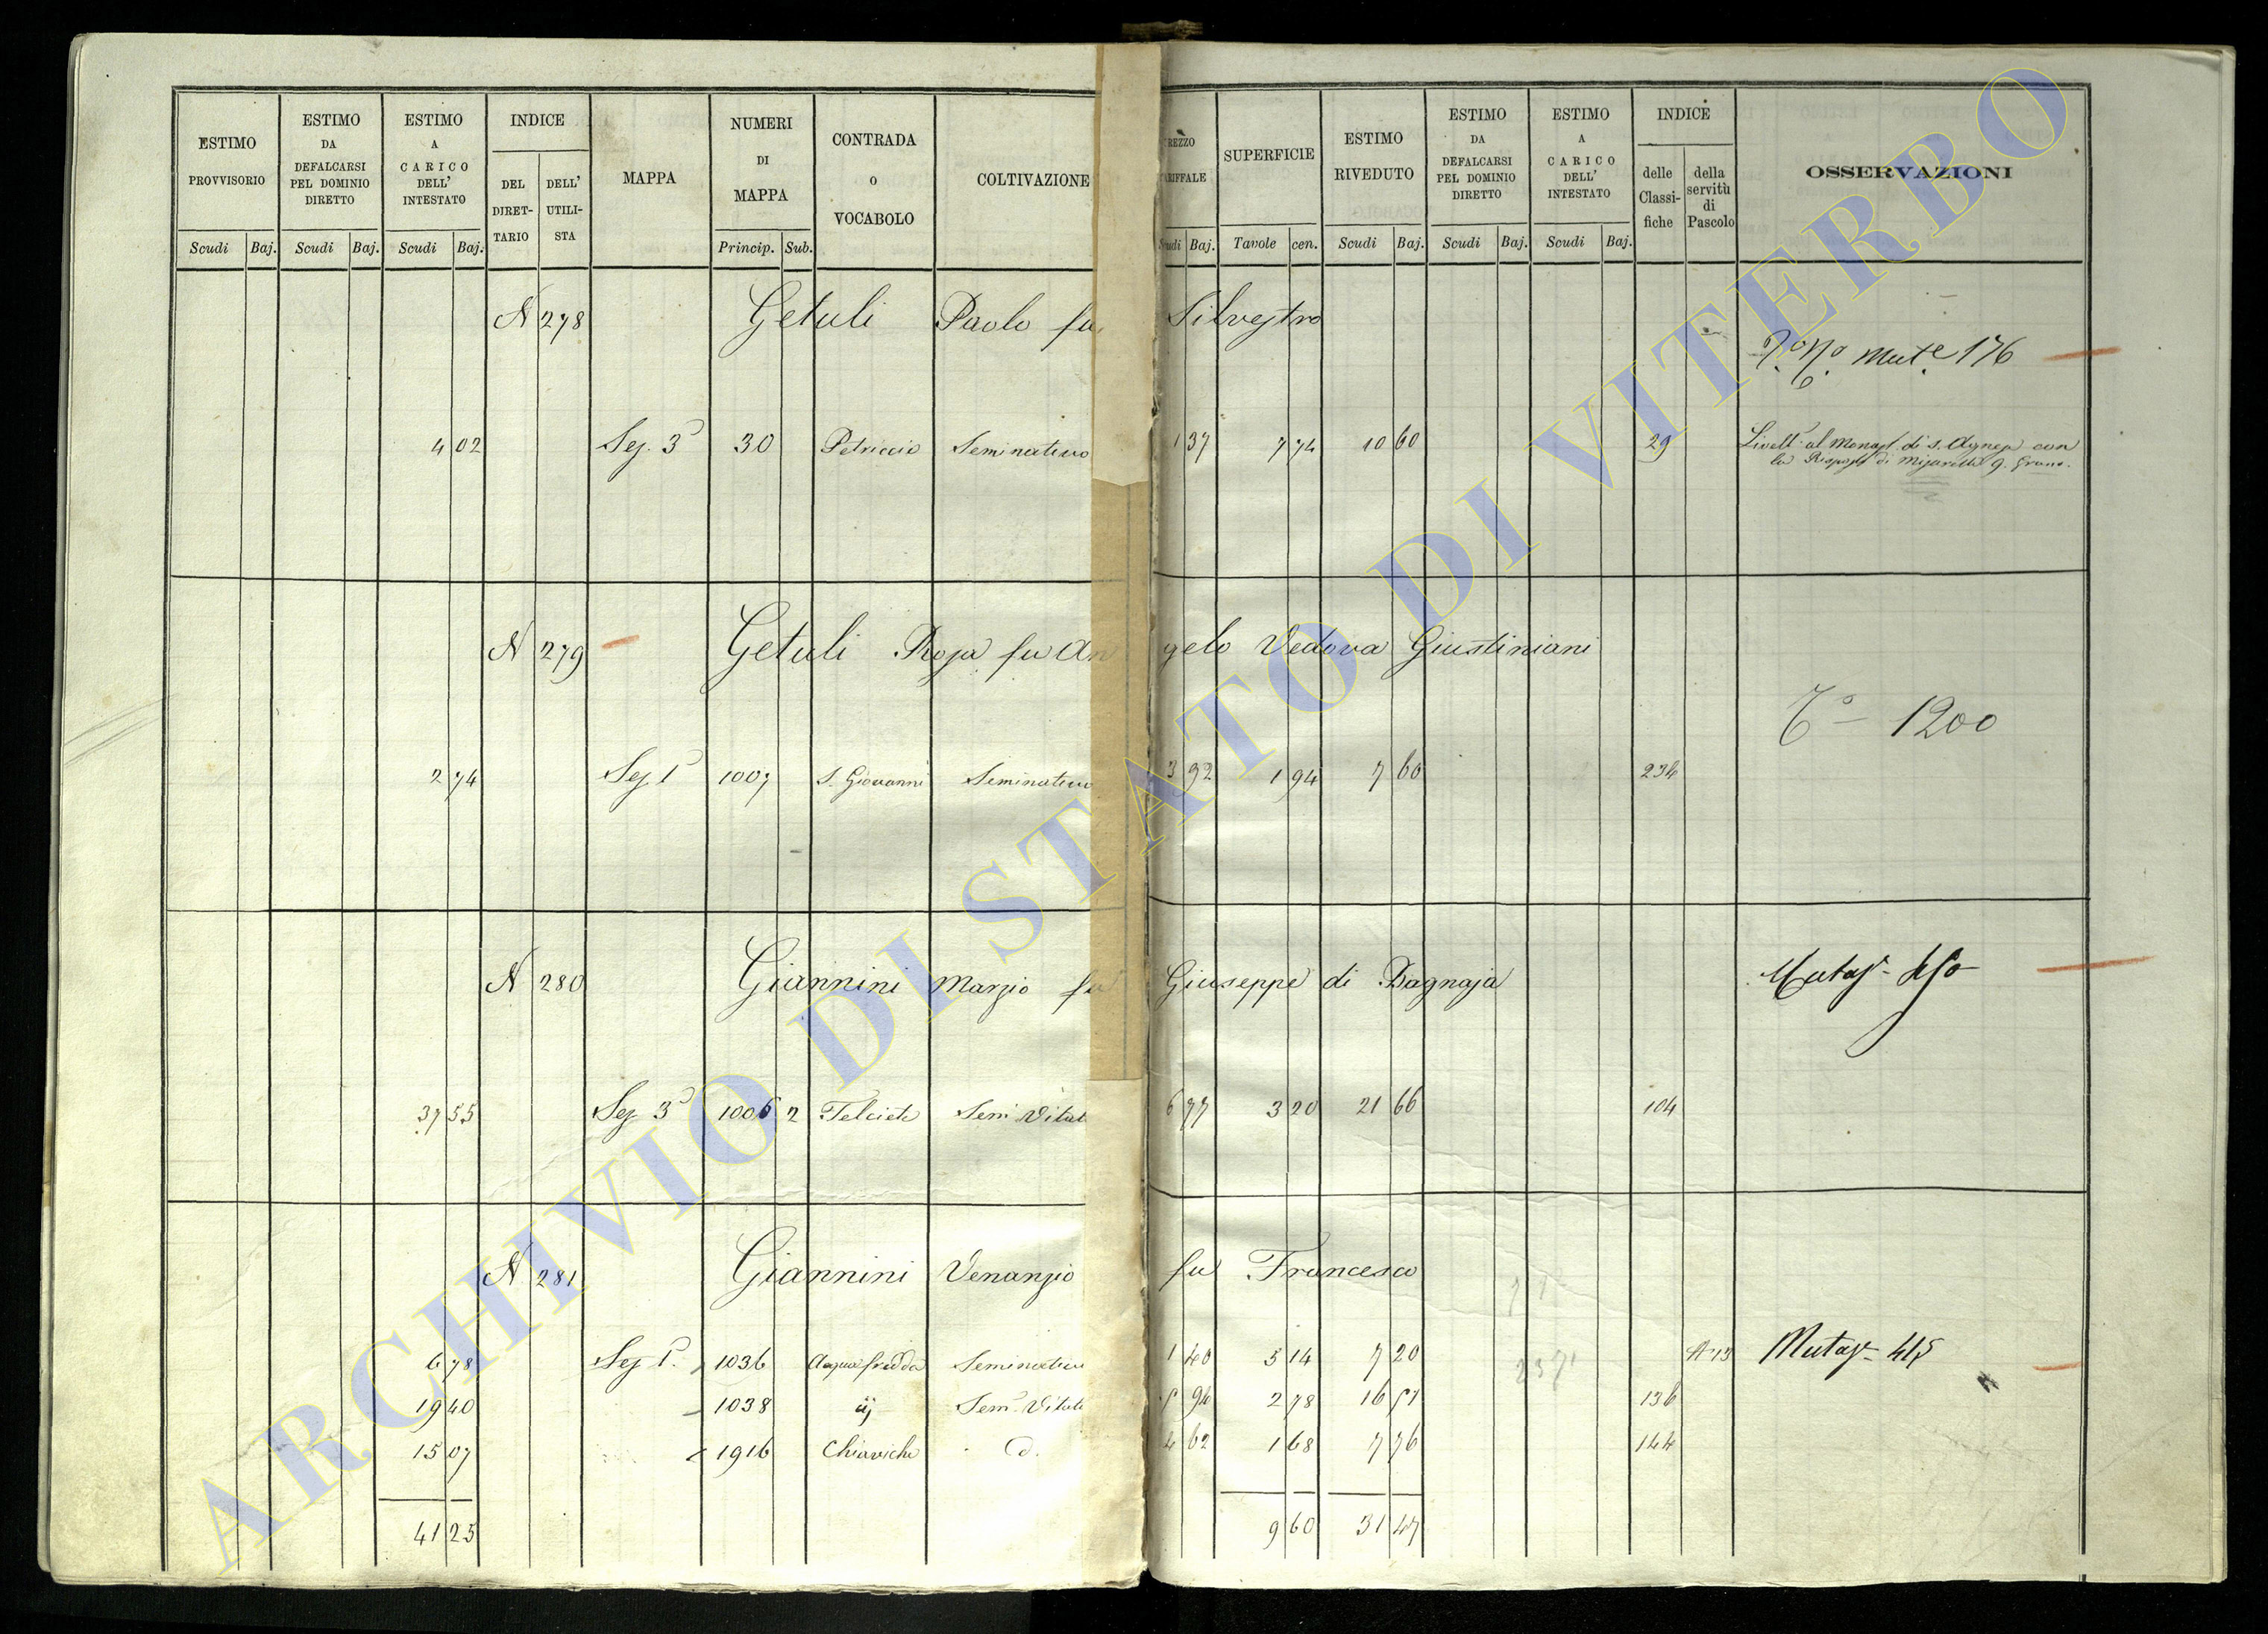 ESTIMO PROVVISORIO
ESTIMO DA DEFALCARSI PEL DOMINIO DIRETTO
ESTIMO A CARICO DELL' INTESTATO
INDICE
DEL DIRET-TARIO
DELL' UTILI-STA
MAPPA
NUMERI DI MAPPA
CONTRADA O VOCABOLO
COLTIVAZIONE
REZZO ARIFFALE
SUPERFICIE
ESTIMO RIVEDUTO
ESTIMO DA DEFALCARSI PEL DOMINIO DIRETTO
ESTIMO A CARICO DELL' INTESTATO
INDICE
delle Classi-fiche
della servitù di Pascolo
OSSERVAZIONI
Scudi Baj. Scudi Baj. Scudi Baj. Princip. Sub. Scudi Baj. Tavole cen. Scudi Baj. Scudi Baj. Scudi Baj.
N 278 Getuli Paolo fu Silvestro
Mut.e 176
4 02 Sez. 3a 30 Petriccio Seminativo 1 37 7 74 10 60 29 Livell. al Monast. di S. Agnese con
la Risposta di Misurelle 9. Grano.
N 279 Getuli Rosa fu Angelo Vedova Giustiniani
To 1200
2 74 Sez 1a 1007 S. Giovanni Seminativo 3 92 1 94 7 60 234
N 280 Giannini Marzio fu Giuseppe di Bagnaja
Mutaz.
37 55 Sez 3a 1006 2 Felciete Sem Vitat 6 77 3 20 21 66 104
N 281 Giannini Venanzio fu Francesco
6 78 Sez 1a. 1036 Acquafredda Seminativo 1 40 5 14 7 20 A 13 Mutaz. 415
19 40 1038 ij Sem. Vitat 5 94 2 78 16 51 136
15 07 1916 Chiaviche d. 4 62 1 68 7 76 144
41 25 9 60 31 47
ARCHIVIO DI STATO DI VITERBO